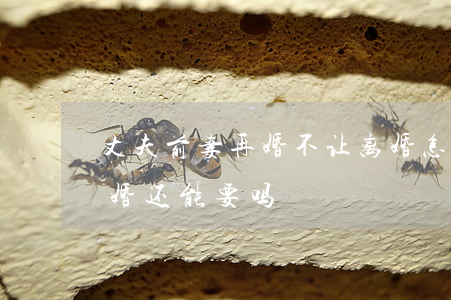 丈夫前妻再婚不让离婚怎
婚还能要吗